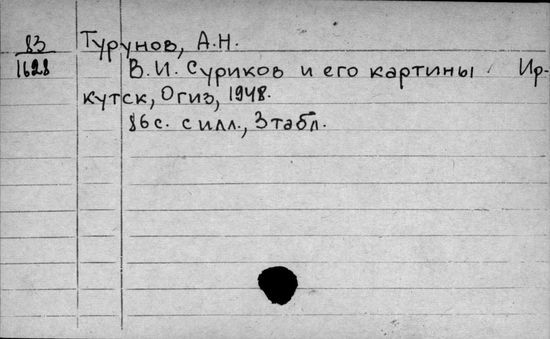 83 Турунов, А.Н.
1628 В.И. Суриков и его картины. Ир-
кутск, Огиз, 1948.
86с. с илл., 3 табл.